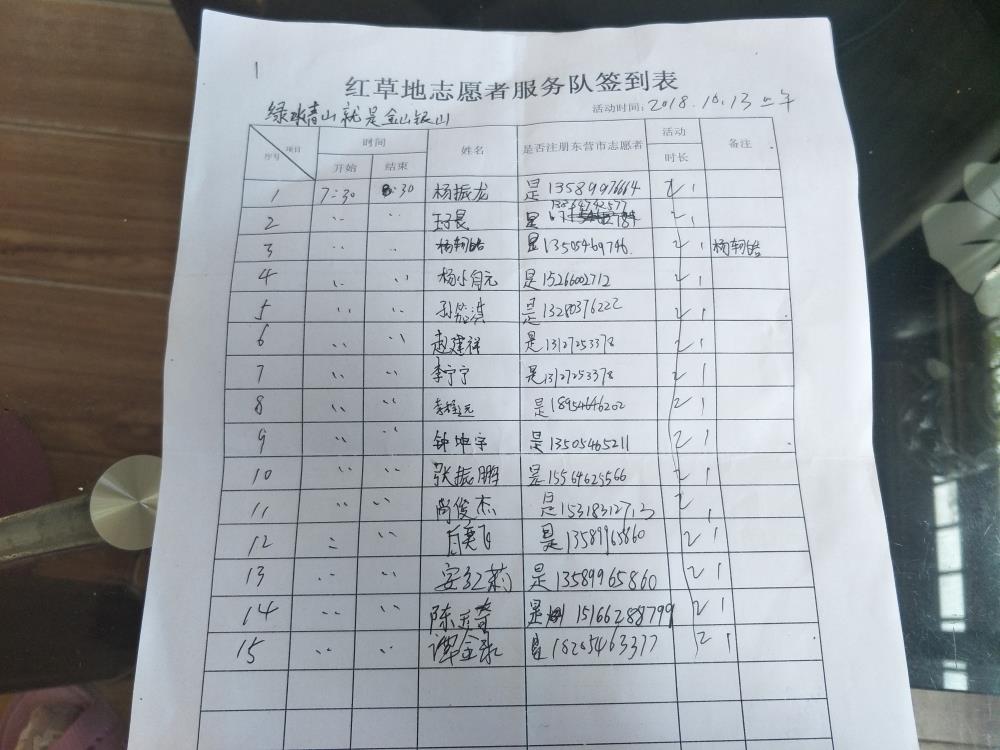 1
红草地志愿者服务队签到表
绿水青山就是金山银山 活动时间：2018.10.13上午
序号 项目 时间 姓名 是否注册东营市志愿者 活动 备注
开始 结束 时长
1 7:30 8:30 杨振龙 是 13589976664 2 1
2 〃 〃 是 13864742577 2 1
3 〃 〃 杨轲皓 是 13505469746. 2 1 杨轲皓
4 〃 〃 是 15266002712 2 1
5 〃 〃 是 13280376222 2 1
6 〃 〃 赵建祥 是 13127253378 2 1
7 〃 〃 李宁宁 是 13127253378 2 1
8 〃 〃 李程远 是 18954646202 2 1
9 〃 〃 钟坤宇 是 13505465211 2 1
10 〃 〃 张振鹏 是 15564625566 2 1
11 〃 〃 尚俊杰 是 15318312713 2 1
12 〃 〃 是 13589965860 2 1
13 〃 〃 安红莉 是 13589965860 2 1
14 〃 〃 陈玉奇 是 15166288799 2 1
15 〃 〃 谭金录 是 18205463377 2 1